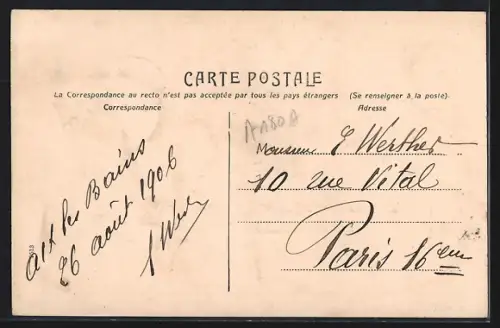 CARTE POSTALE
La Correspondance au recto n'est pas acceptée par tous les pays étrangers (Se renseigner à la poste)
Correspondance
Adresse
A180A
Aix les Bains
26 août 1906
Monsieur E Werther
10 rue Vital
Paris 16em